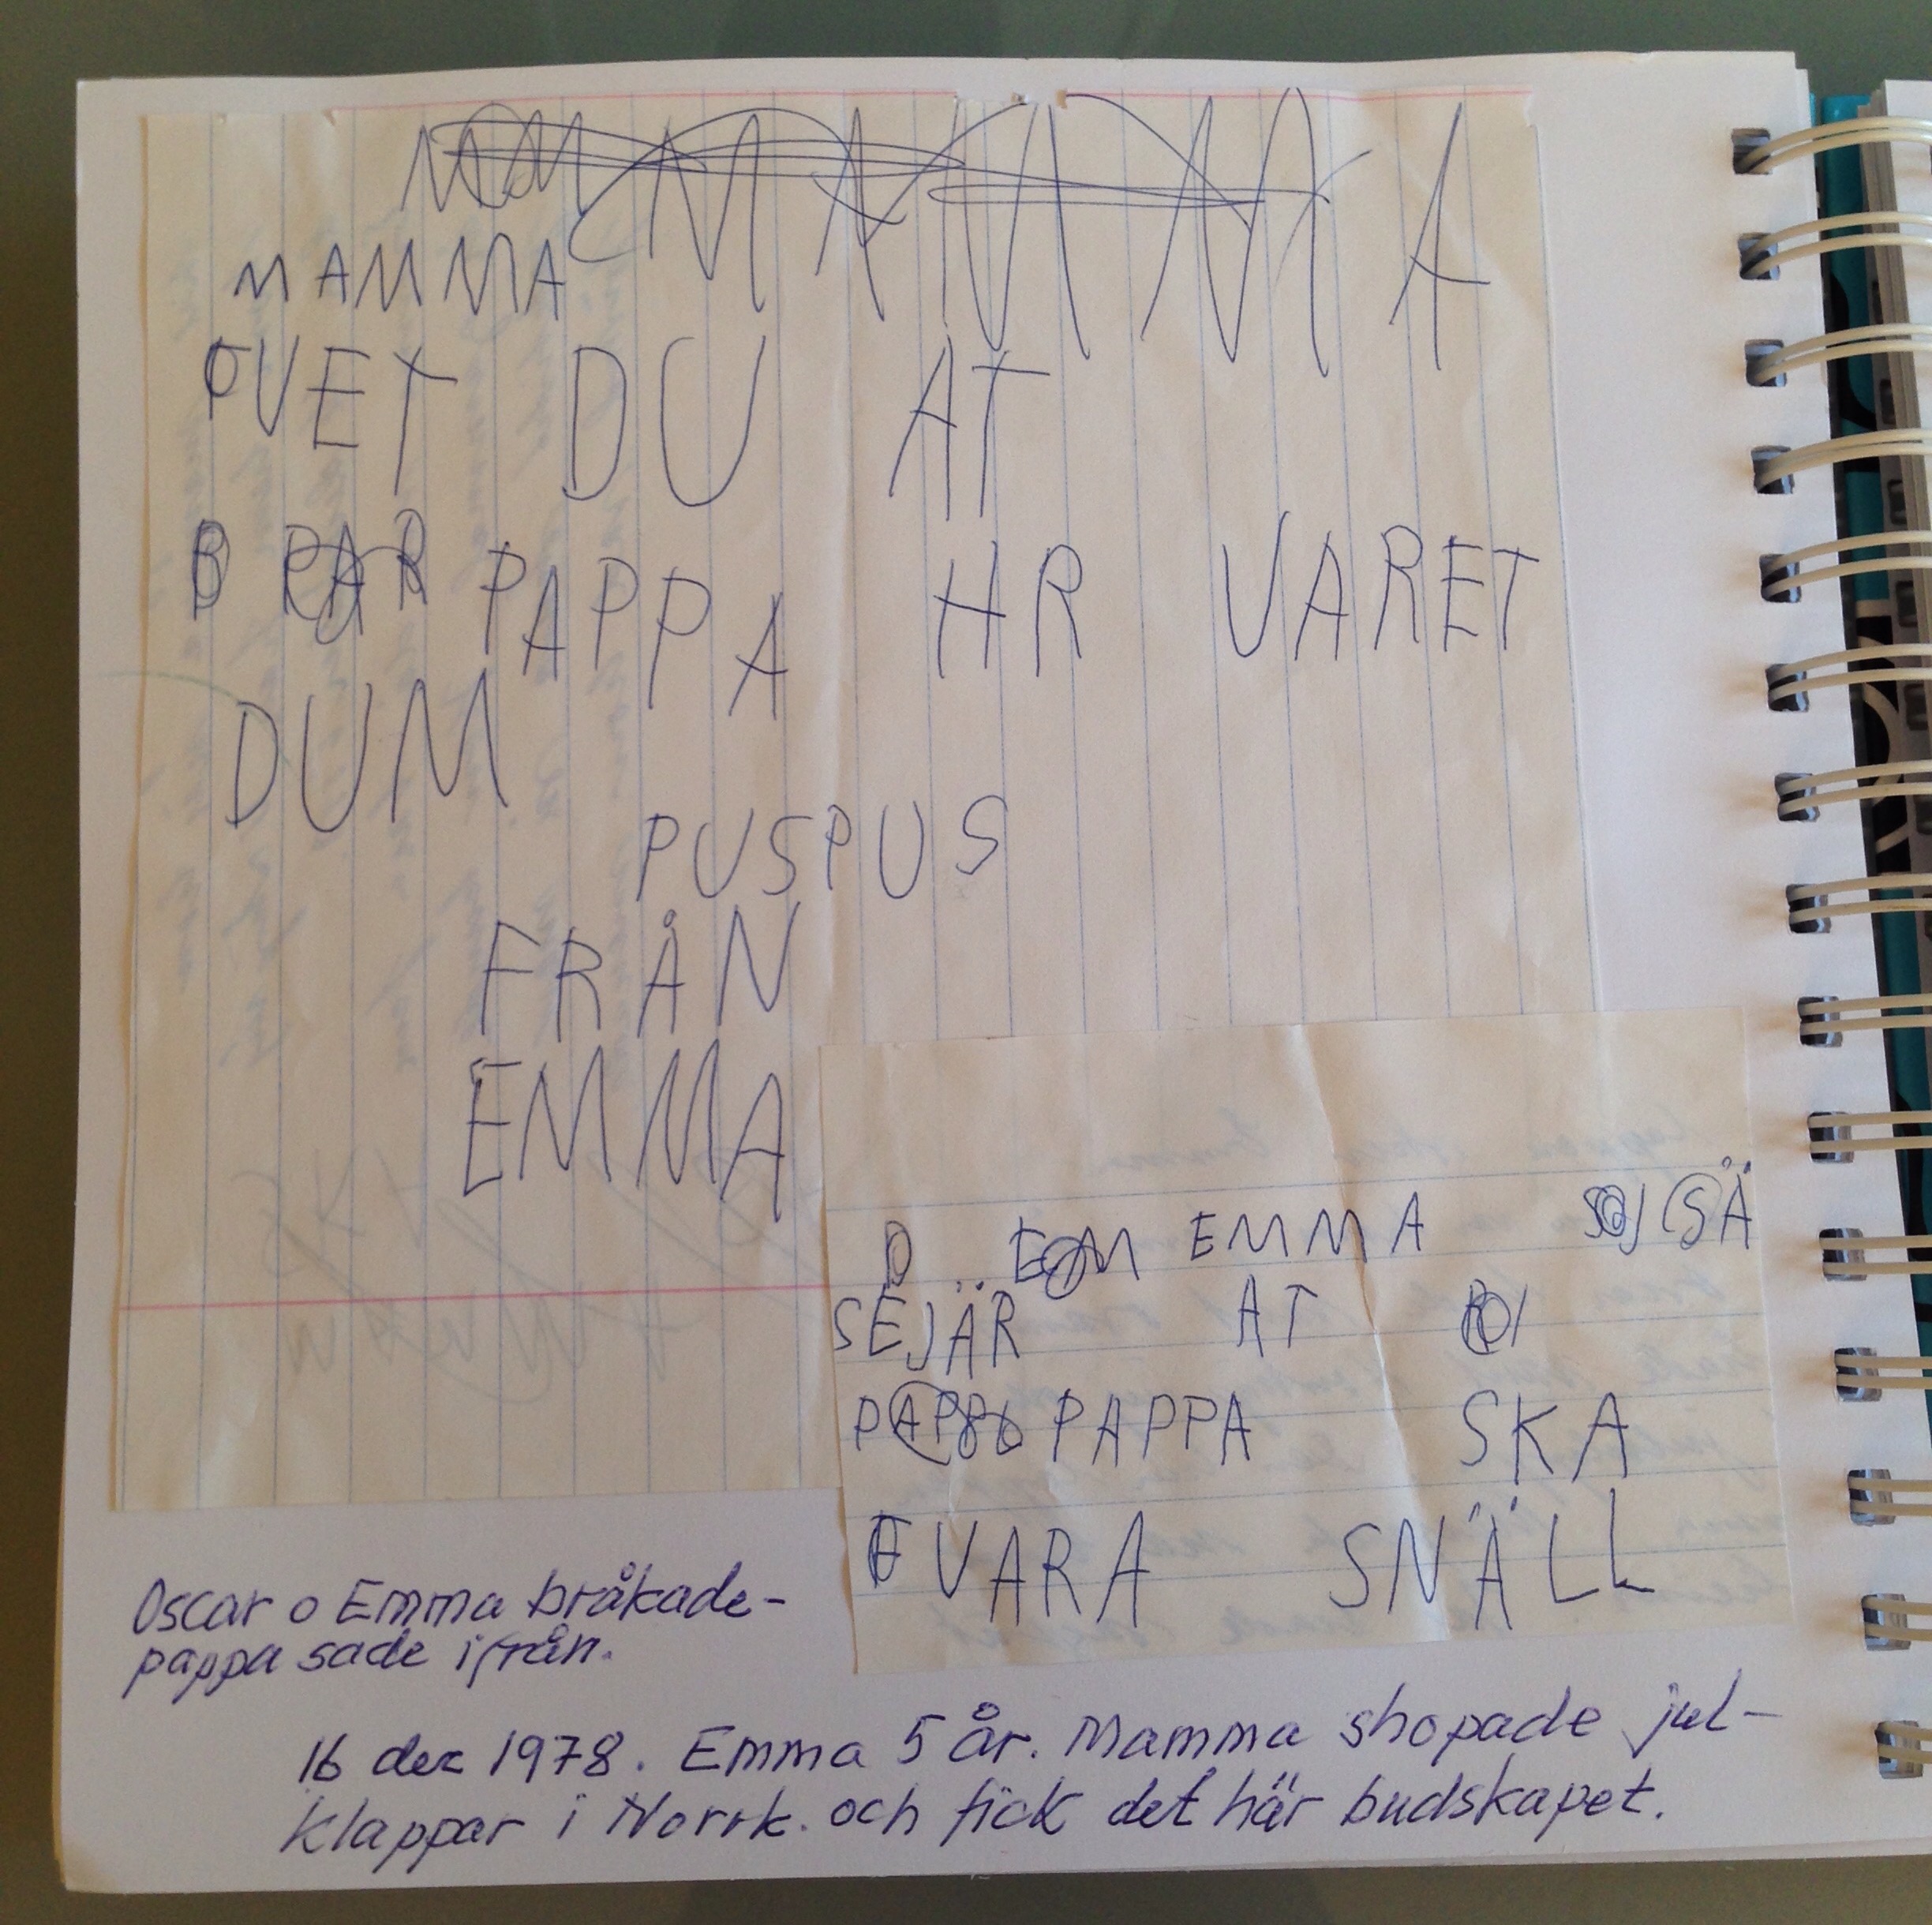 MAMMA
MAMMA
VET DU AT
PAPPA HR VARET
DUM
PUSPUS
FRÅN
EMMA
EMMA
SEJÄR AT
PAPPA SKA
VARA SNÄLL
Oscar o Emma bråkade-
pappa sade ifrån.
16 dec 1978. Emma 5 år. Mamma shopade jul-
klappar i Norrk. och fick det här budskapet.